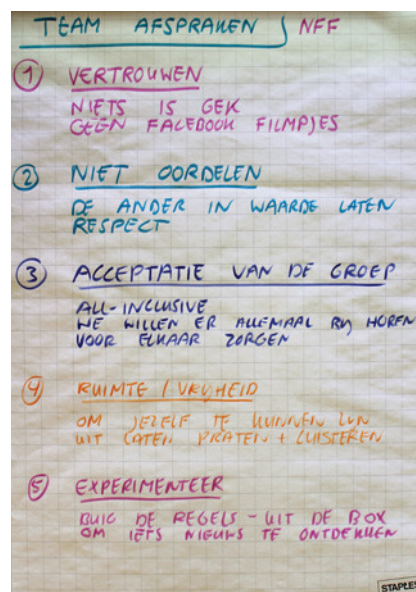 TEAM AFSPRAKEN NFF
1 VERTROUWEN
NIETS IS GEK
GEEN FACEBOOK FILMPJES
2 NIET OORDELEN
DE ANDER IN WAARDE LATEN
RESPECT
3 ACCEPTATIE VAN DE GROEP
ALL-INCLUSIVE
WE WILLEN ER ALLEMAAL BIJ HOREN
VOOR ELKAAR ZORGEN
4 RUIMTE / VRIJHEID
OM JEZELF TE KUNNEN ZIJN
UIT LATEN PRATEN + LUISTEREN
5 EXPERIMENTEER
BUIG DE REGELS - UIT DE BOX
OM IETS NIEUWS TE ONTDEKKEN
STAPLES